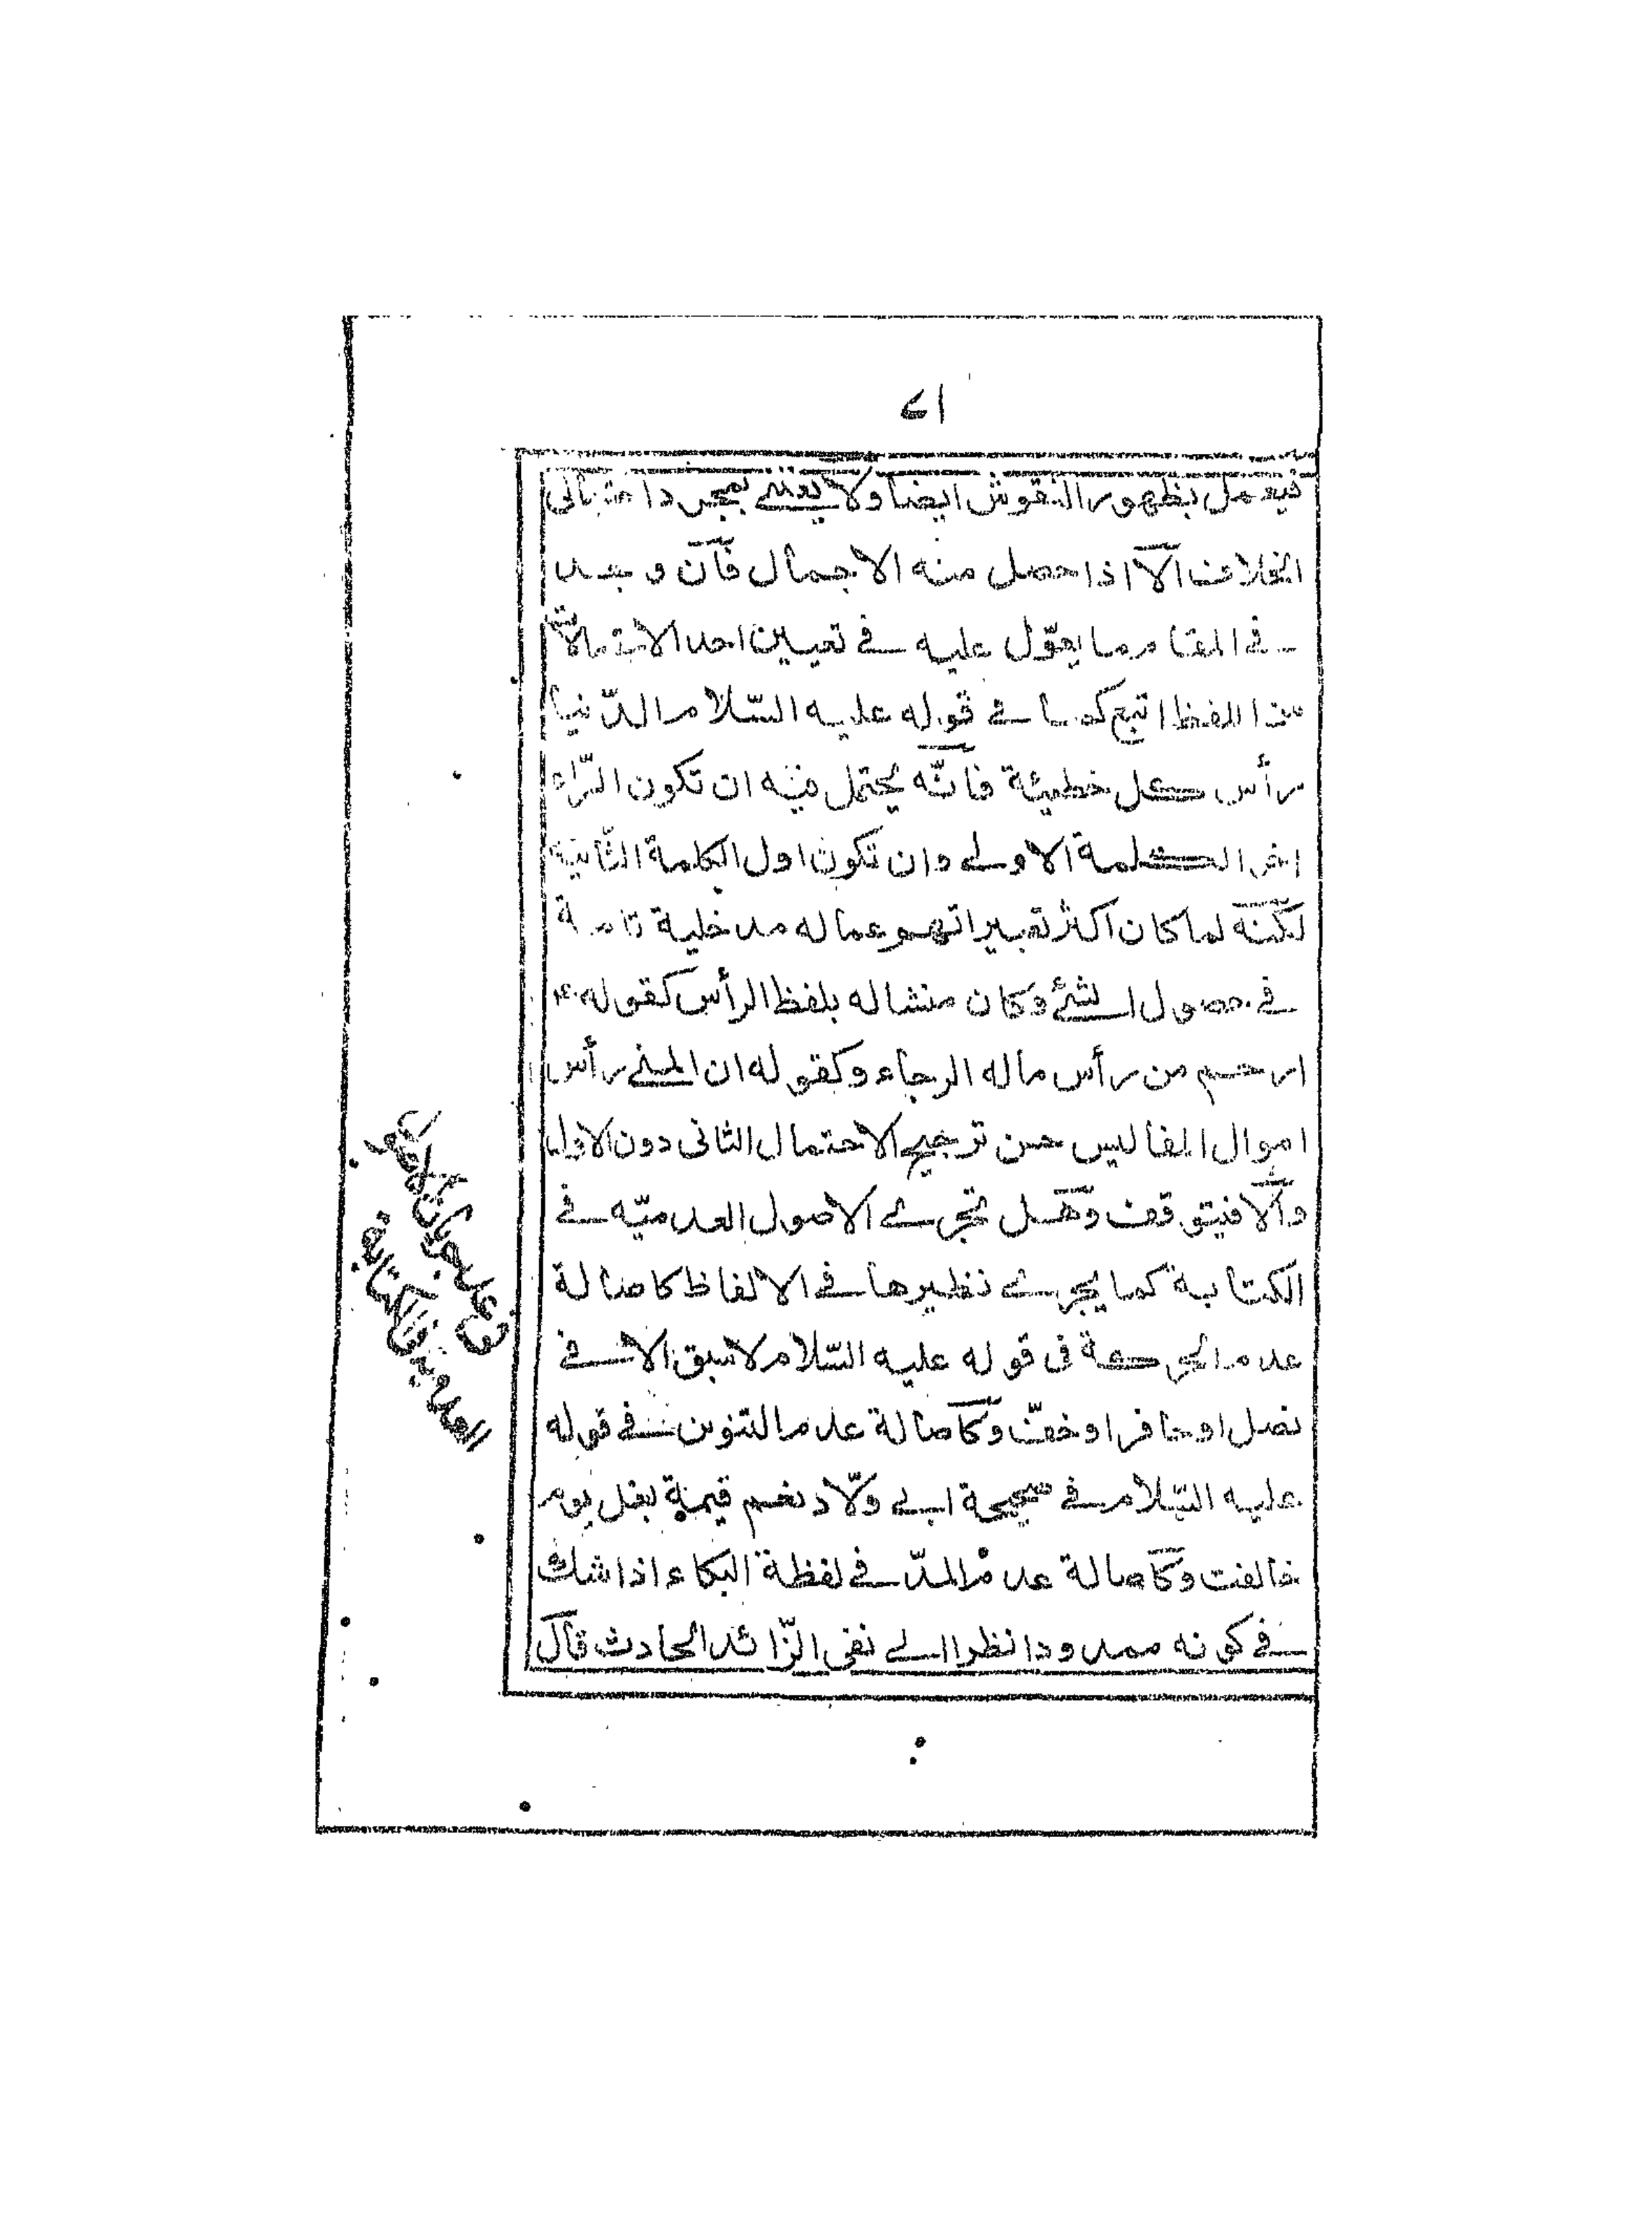 ۷۱
فيعمل بظهور النقوش ايضا ولا يعتنى بمجرد احتمال
الخلاف الّا اذا حصل منه الاجمال فان وجد
فى المقام ما يعوّل عليه فى تعيين احد الاحتمالات
من اللفظ اتبع كما فى قوله عليه السّلام الدّنيا
رأس كل خطيئة فانّه يحتمل فيه ان تكون الرّاء
اخر الكلمة الاولى وان تكون اول الكلمة الثّانية
لكنّه لما كان اكثر تعبيراتهم عما له مدخلية تامة
فى حصول الشئ وكان منشا له بلفظ الرأس كقوله ع
ارحم من رأس ماله الرجاء وكقوله ان المنى رأس
اموال المفاليس حسن ترجيح الاحتمال الثانى دون الاول
والّا فيتوقف وهل تجرى الاصول العدميّه فى
الكتابة كما يجرى نظيرها فى الالفاظ كاصالة
عدم الحركة فى قوله عليه السّلام لا سبق الا فى
نصل او حافر او خفّ وكاصالة عدم التنوين فى قوله
عليه السّلام فى صحيحة ابى ولّاد نعم قيمة بغل يوم
خالفت وكاصالة عدم المدّ فى لفظة البكاء اذا شك
فى كونه ممدودا نظرا الى نفى الزّائد الحادث قال
فى عدم جريان الاصول
العدميّة فى الكتابة